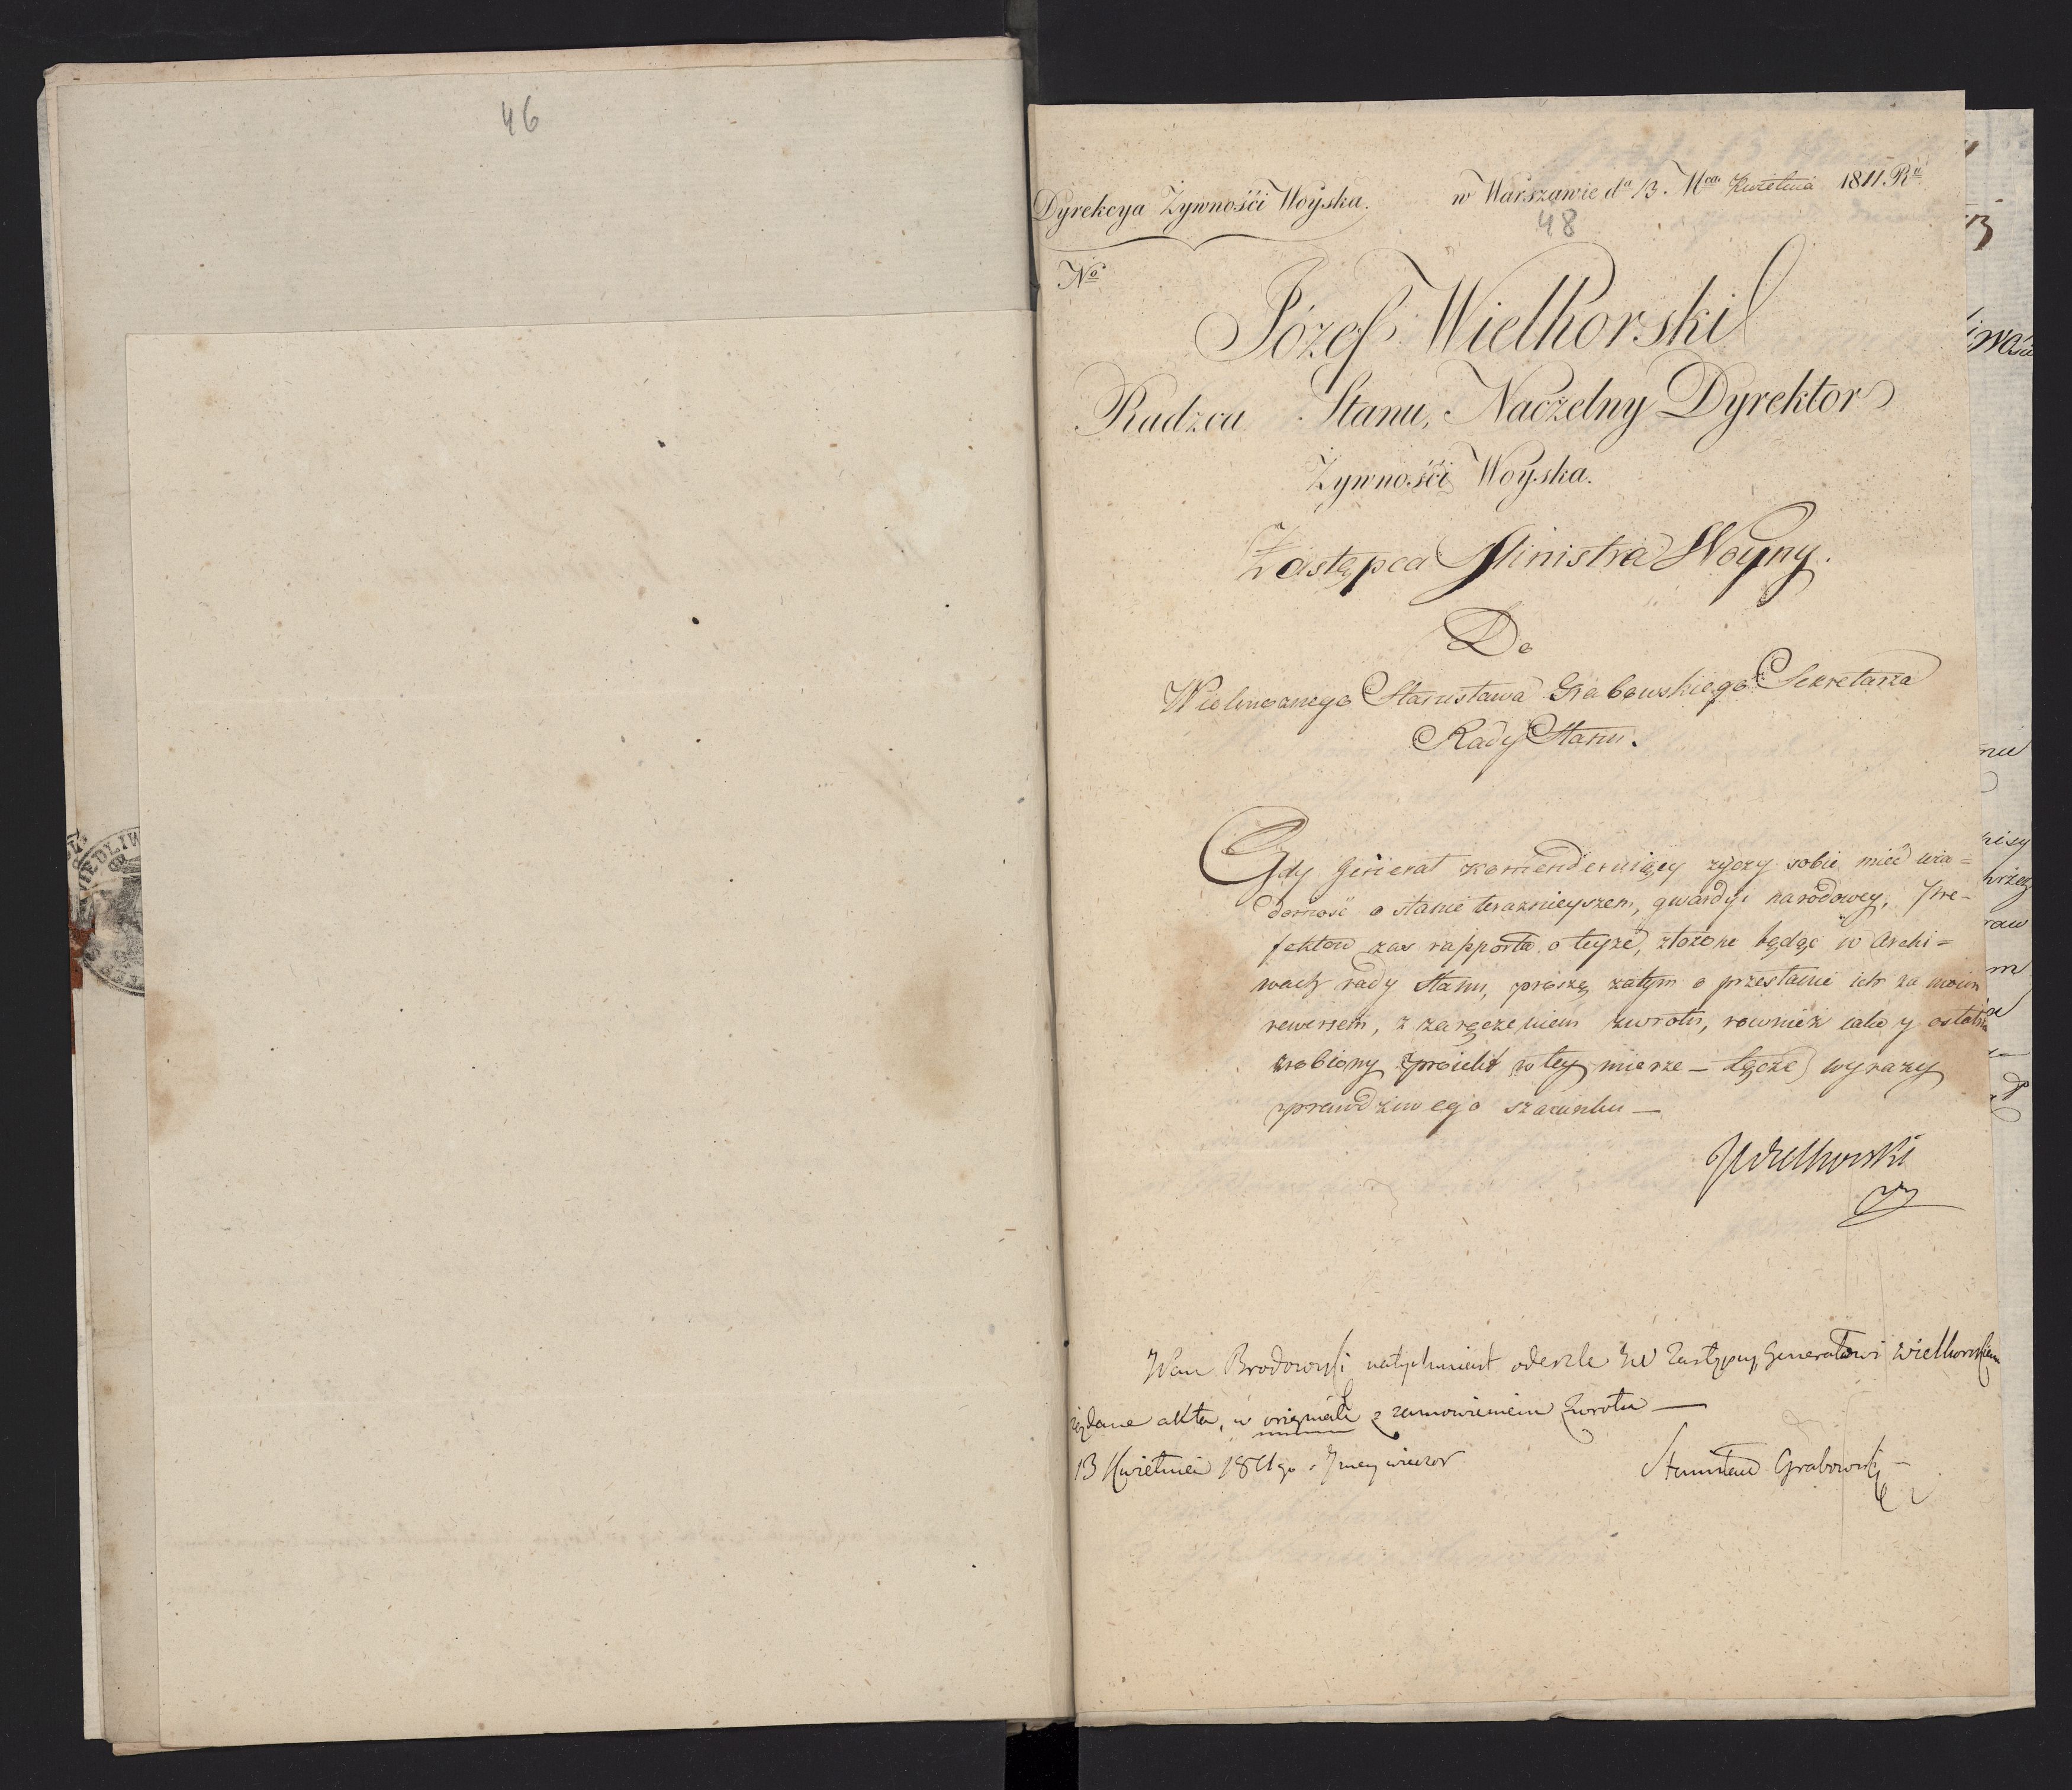 46
Dyrekcya Żywnośći Woyska.
w Warszawie da 13. Mca Kwietnia 1811. Ru
48
No
Józef Wielhorski
Radzca Stanu, Naczelny Dyrektor
Żywnośći Woyska.
Zastępca Ministra Woyny.
Do
Wielmożnego Stanisława Grabowskiego Sekretarza
Rady Stanu.
Gdy Jenerał kommenderuiący życzy sobie mieć wia=
domość o stanie teraznieyszem, gwardyi narodowey, Pre-
fektow zas rapporta o teyże, złożone będąc w Archi=
wach rady stanu, proszę zatym o przesłanie ich za moim
rewersem, z zaręczeniem zwrotu, rownież iako y ostatni
zrobiony proiekt w tey mierze – Łączę wyrazy
prawdziwego szacunku –
JWielhorski
Pan Brodowski natychmiast odeszle JW Zastępcy, Generałowi Wielhorskiemu
żądane akta, w originale z zamowieniem zwrotu —
13 Kwietnia 1811go wieczor
Stanisław Grabowski